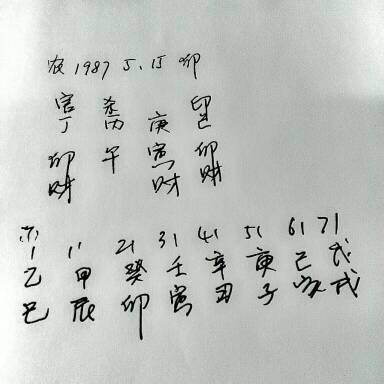 农 1987 5.15 卯
官 杀 印
丁 丙 庚 己
卯 午 寅 卯
财 财 财
1 11 21 31 41 51 61 71
乙 甲 癸 壬 辛 庚 己 戊
巳 辰 卯 寅 丑 子 亥 戌